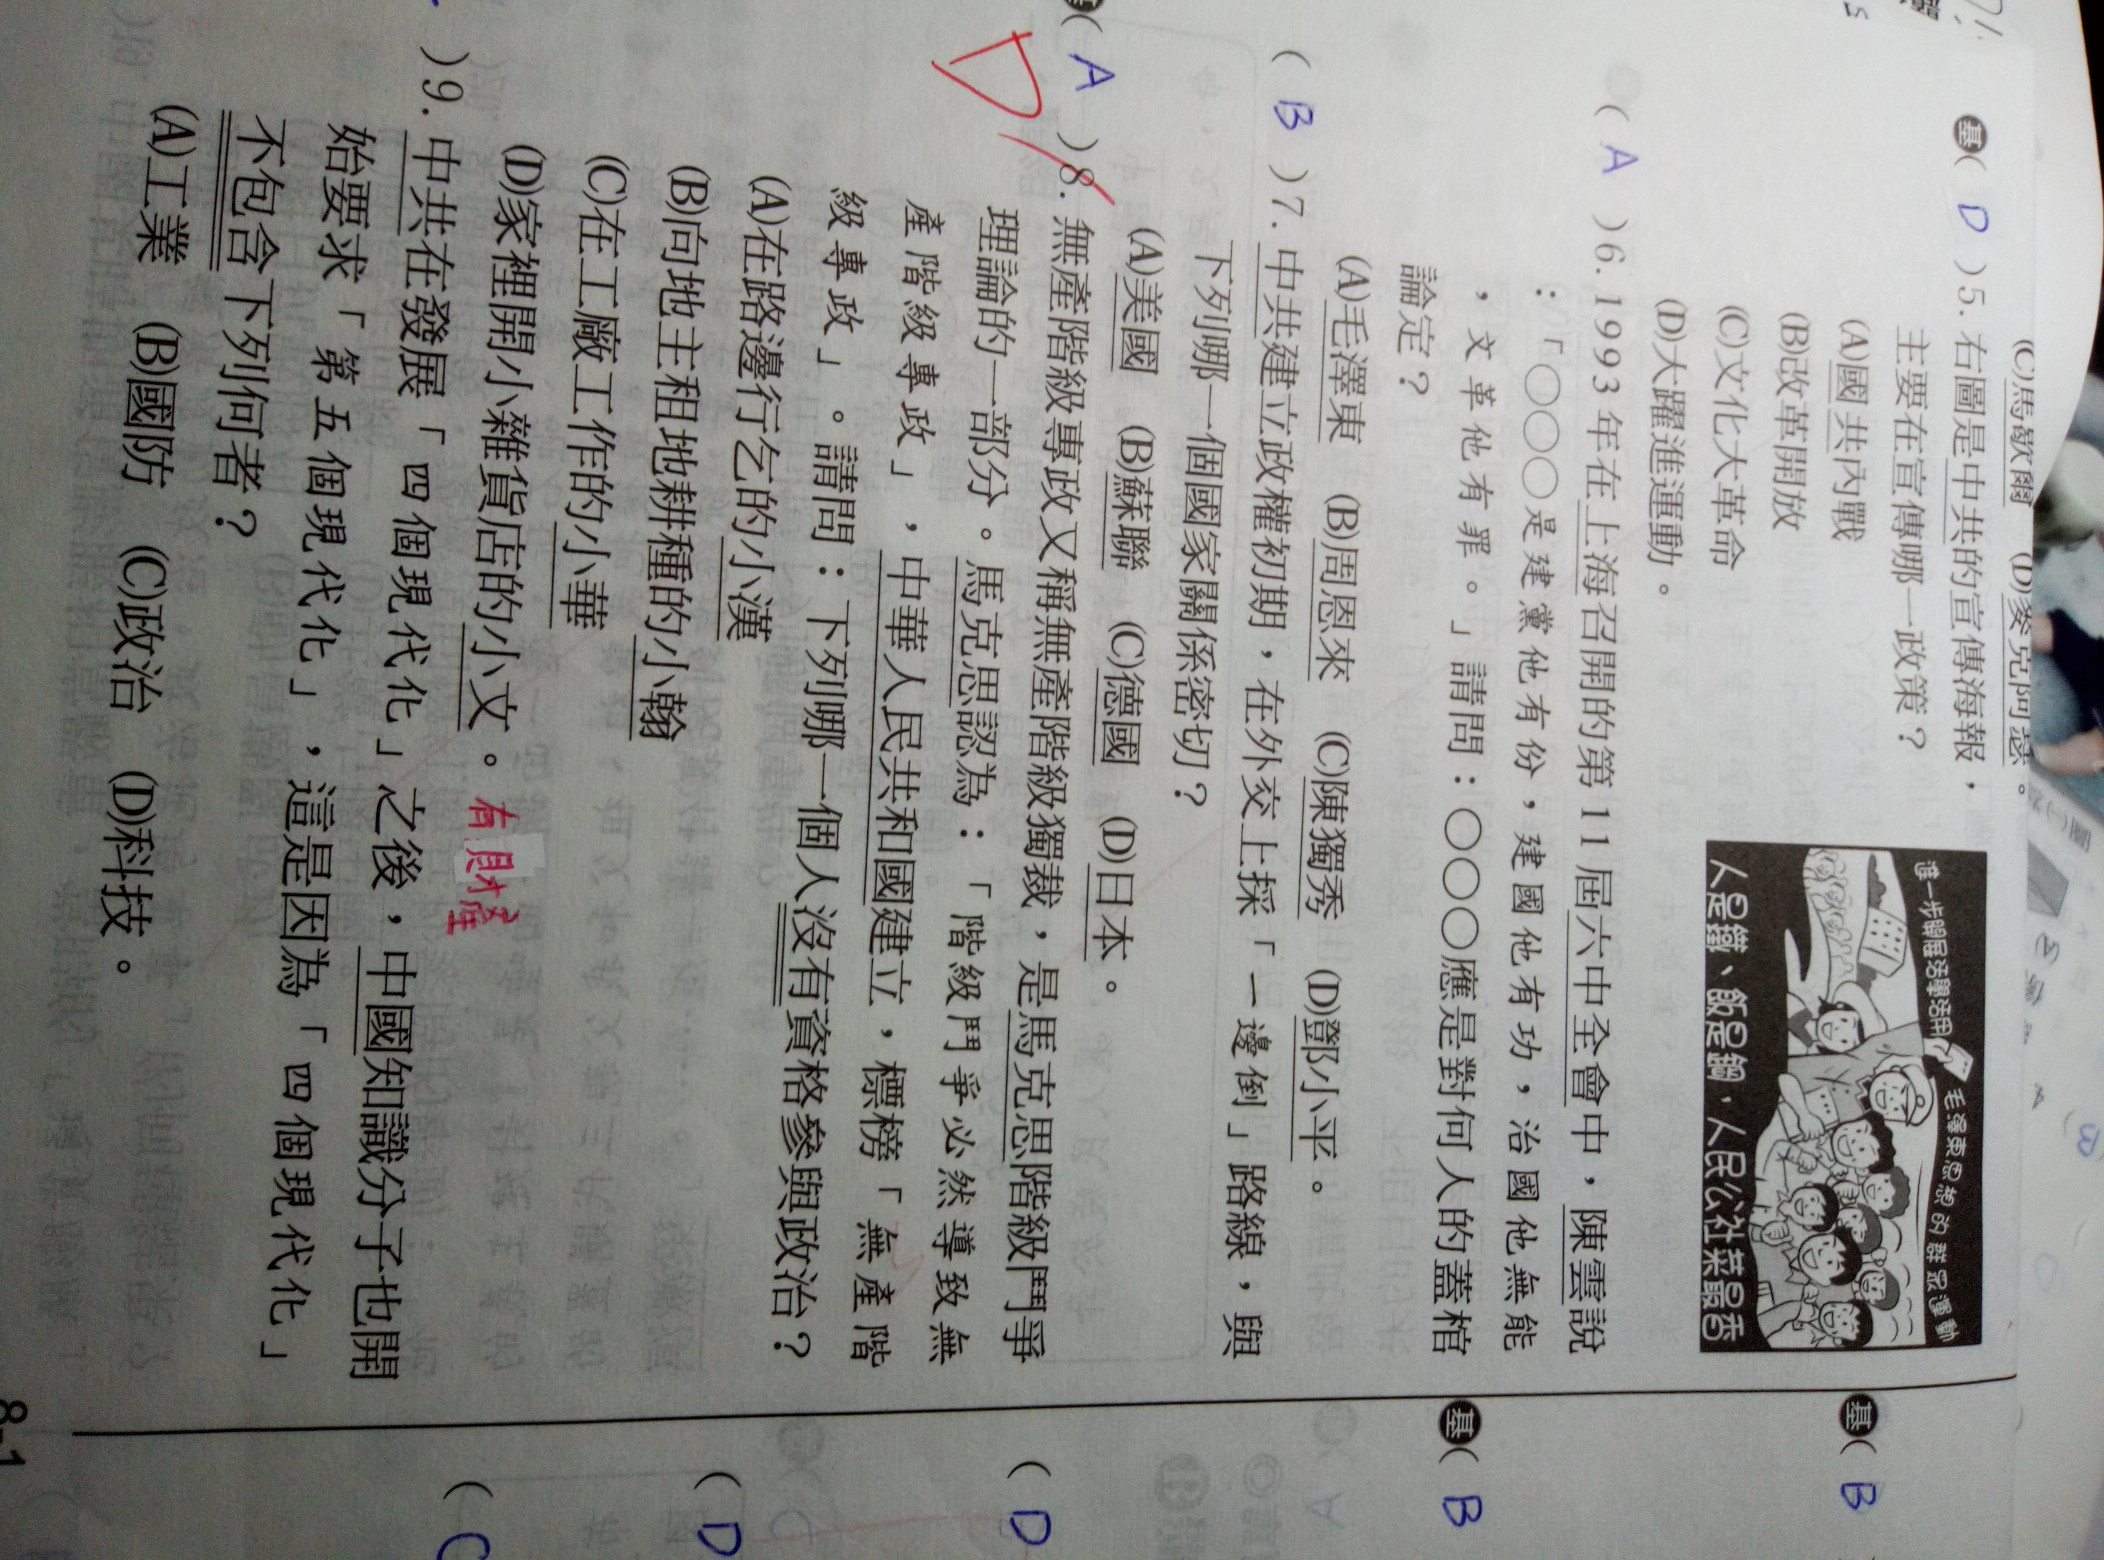 (C)馬歇爾 (D)麥克阿瑟。
基( D )5.右圖是中共的宣傳海報，
主要在宣傳哪一政策？
(A)國共內戰
(B)改革開放
(C)文化大革命
(D)大躍進運動。
進一步開展活學活用
毛澤東思想的群眾運動
人是鐵、飯是鋼，人民公社菜最香
( A )6.1993年在上海召開的第11屆六中全會中，陳雲說
：「○○○是建黨他有份，建國他有功，治國他無能
，文革他有罪。」請問：○○○應是對何人的蓋棺
論定？
(A)毛澤東 (B)周恩來 (C)陳獨秀 (D)鄧小平。
( B )7.中共建立政權初期，在外交上採「一邊倒」路線，與
下列哪一個國家關係密切？
(A)美國 (B)蘇聯 (C)德國 (D)日本。
基( A )8.無產階級專政又稱無產階級獨裁，是馬克思階級鬥爭
D
理論的一部分。馬克思認為：「階級鬥爭必然導致無
產階級專政」，中華人民共和國建立，標榜「無產階
級專政」。請問：下列哪一個人沒有資格參與政治？
(A)在路邊行乞的小漢
(B)向地主租地耕種的小翰
(C)在工廠工作的小華
(D)家裡開小雜貨店的小文。 有財產
)9.中共在發展「四個現代化」之後，中國知識分子也開
始要求「第五個現代化」，這是因為「四個現代化」
不包含下列何者？
(A)工業 (B)國防 (C)政治 (D)科技。
基( B
基( B
( D
( D
( C
8-1